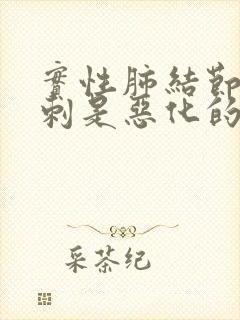 實性肺結節
刺是惡化的
采茶纪